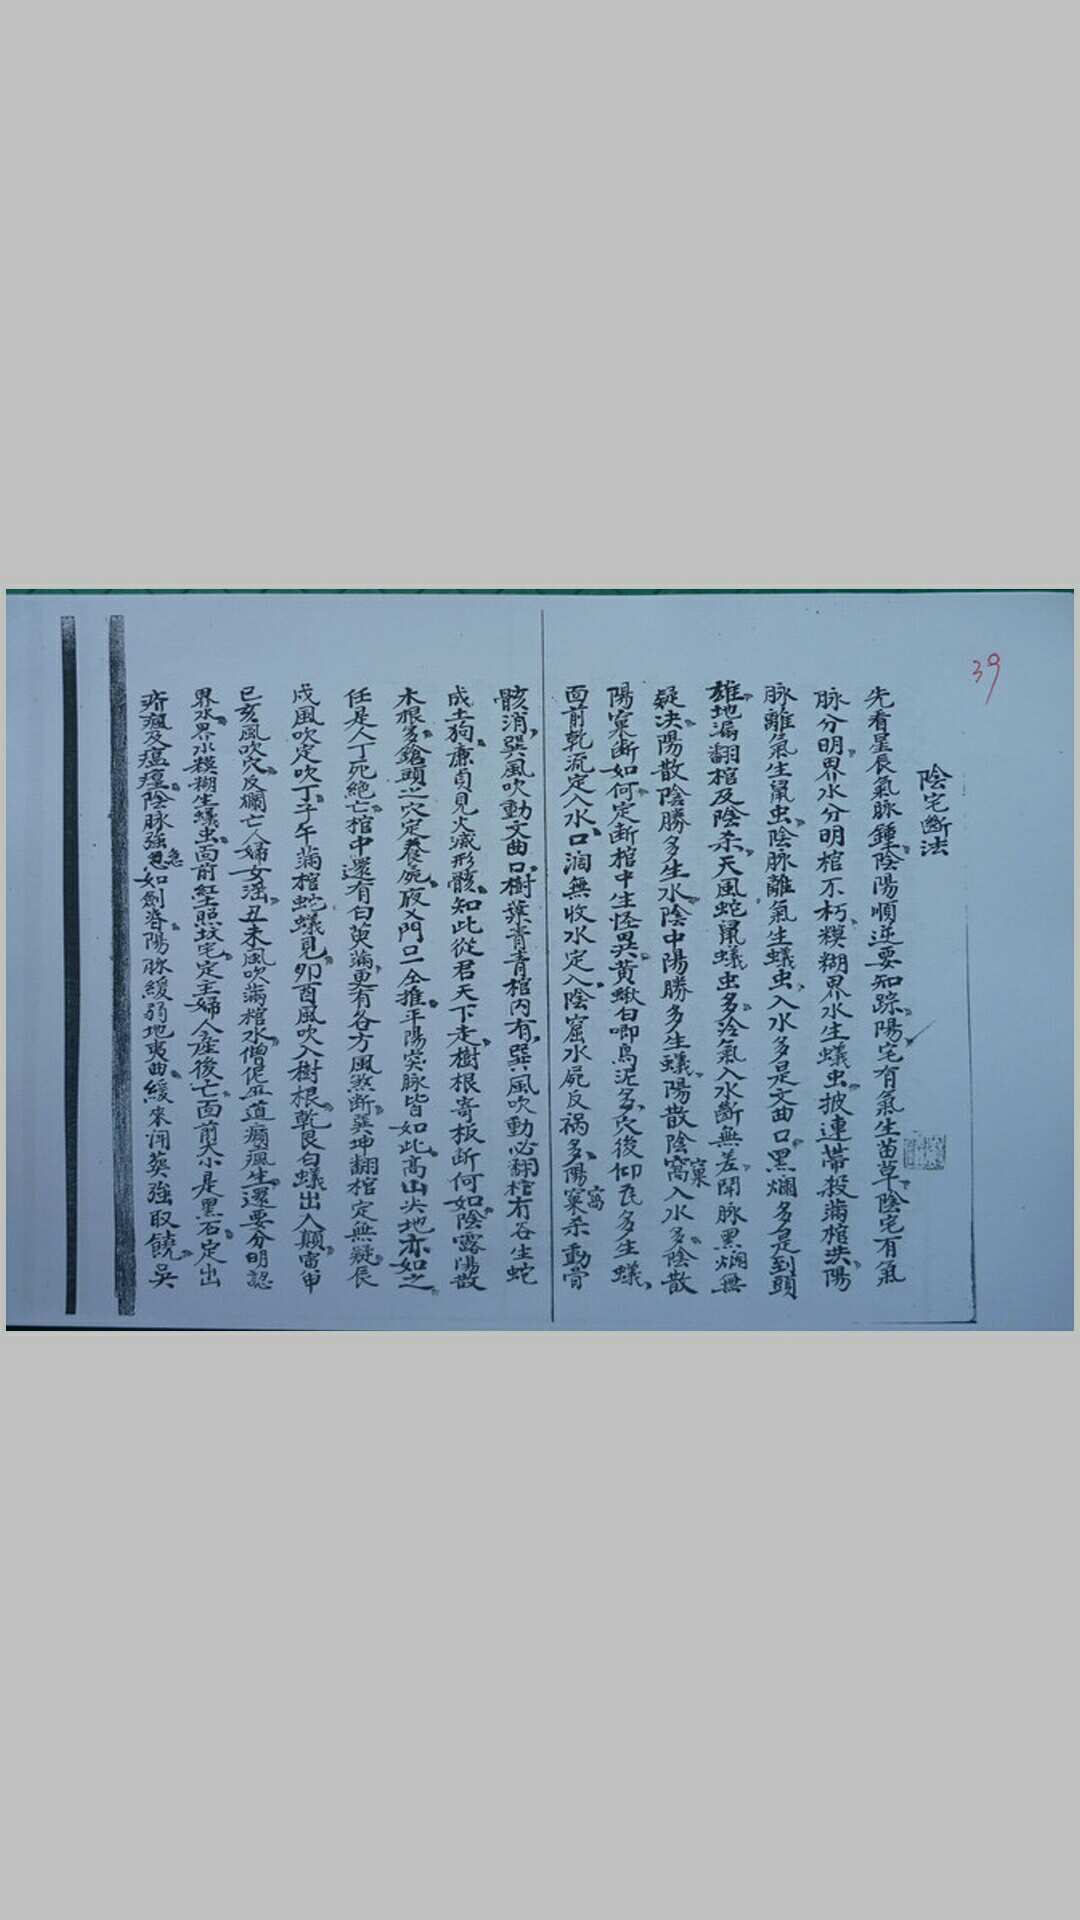 39
陰宅斷法
先看星辰氣脉鍾陰陽順逆要知踪陽宅有氣生苗草陰宅有氣
脉分明界水分明棺不朽糢糊界水生蟻虫披連蒂殺滿棺洪陽
脉離氣生鼠虫陰脉離氣生蟻虫入水多是文曲口黑爛多是到頭
雄地漏翻棺及陰杀天風蛇鼠蟻虫多冷氣入水斷無差閉脉黑爛無
疑決陽散陰勝多生水陰中陽勝多生蟻陽散陰窩窠入水多陰散
陽窠斷如何定斷棺中生怪異黃鰍白唧鳥泥多穴後仰瓦多生蟻
面前乾流定入水口濶無收水定入陰窟水屍反禍多陽窠窩杀動骨
骸消巽風吹動文曲口樹葉青青棺内有巽風吹動必翻棺有谷生蛇
成土狗廉貞見火滅形骸知此從君天下走樹根寄板斷何如陰露陽散
木根多鎗頭之穴定養屍夜乂門口一仝推平陽突脉皆如此高山尖地亦如之
任是人丁死絶亡棺中還有白萸滿更有各方風煞斷巽坤翻棺定無疑辰
戌風吹定吹丁子午滿棺蛇蟻見卯酉風吹入樹根乾艮白蟻出人顛寅申
巳亥風吹穴反爛亡人婦女滛丑未風吹滿棺水僧佬巫道癲瘋生還要分明認
界水界水糢糊生蟻虫面前紅土照坟宅定主婦人產後亡面前大小是黑石定出
疥瘋及瘟㾮陰脉強急如劍脊陽脉緩弱地夷曲緩來開葬強取饒吳